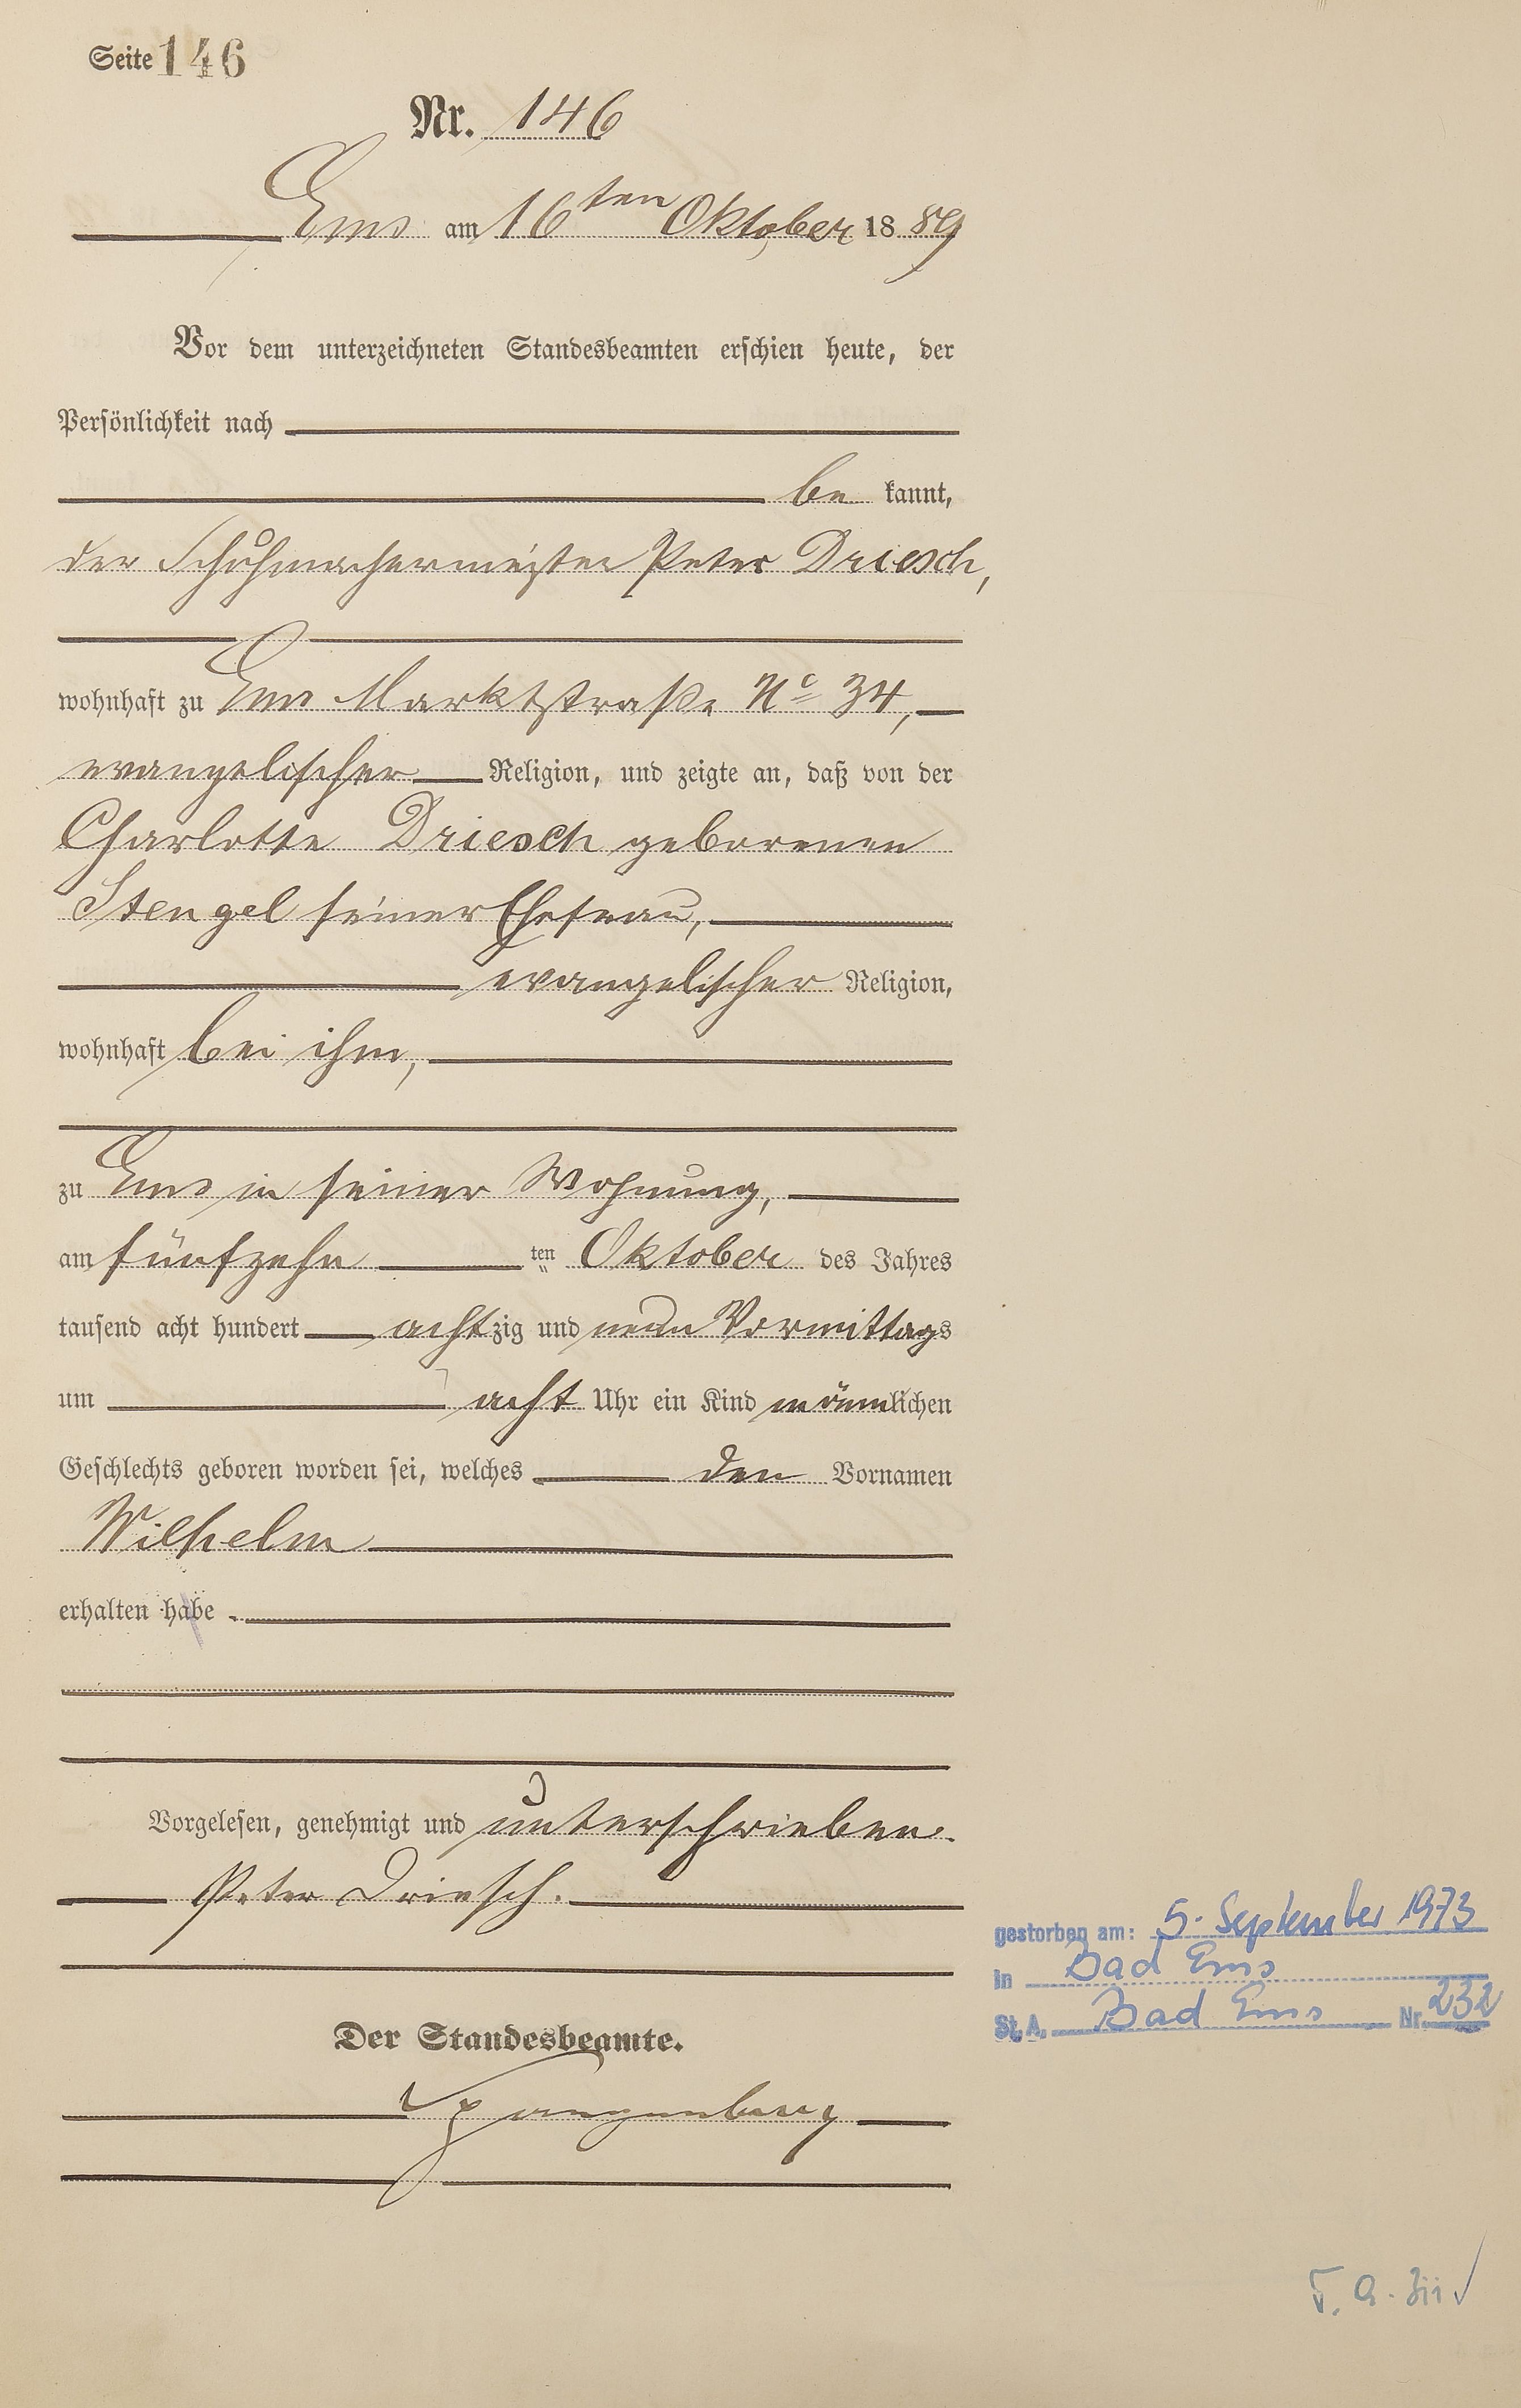 Seite 146
Nr. 146
Ems am 16ten Oktober 1889
Vor dem unterzeichneten Standesbeamten erschien heute, der
Persönlichkeit nach
be kannt,
der Schuhmachermeister Peter Driesch,
wohnhaft zu Ems Marktstraße No 34,
evangelischer Religion, und zeigte an, daß von der
Charlotte Driesch geborenen
Stengel seiner Ehefrau,
evangelischer Religion,
wohnhaft bei ihm,
zu Ems in seiner Wohnung,
am fünfzehn ten Oktober des Jahres
tausend acht hundert achtzig und neun Vormittags
um acht Uhr ein Kind männlichen
Geschlechts geboren worden sei, welches den Vornamen
Wilhelm
erhalten habe
Vorgelesen, genehmigt und unterschrieben.
Peter Driesch.
gestorben am: 5. September 1973
in Bad Ems
St. A. Bad Ems Nr. 232
Der Standesbeamte.
Spangenberg